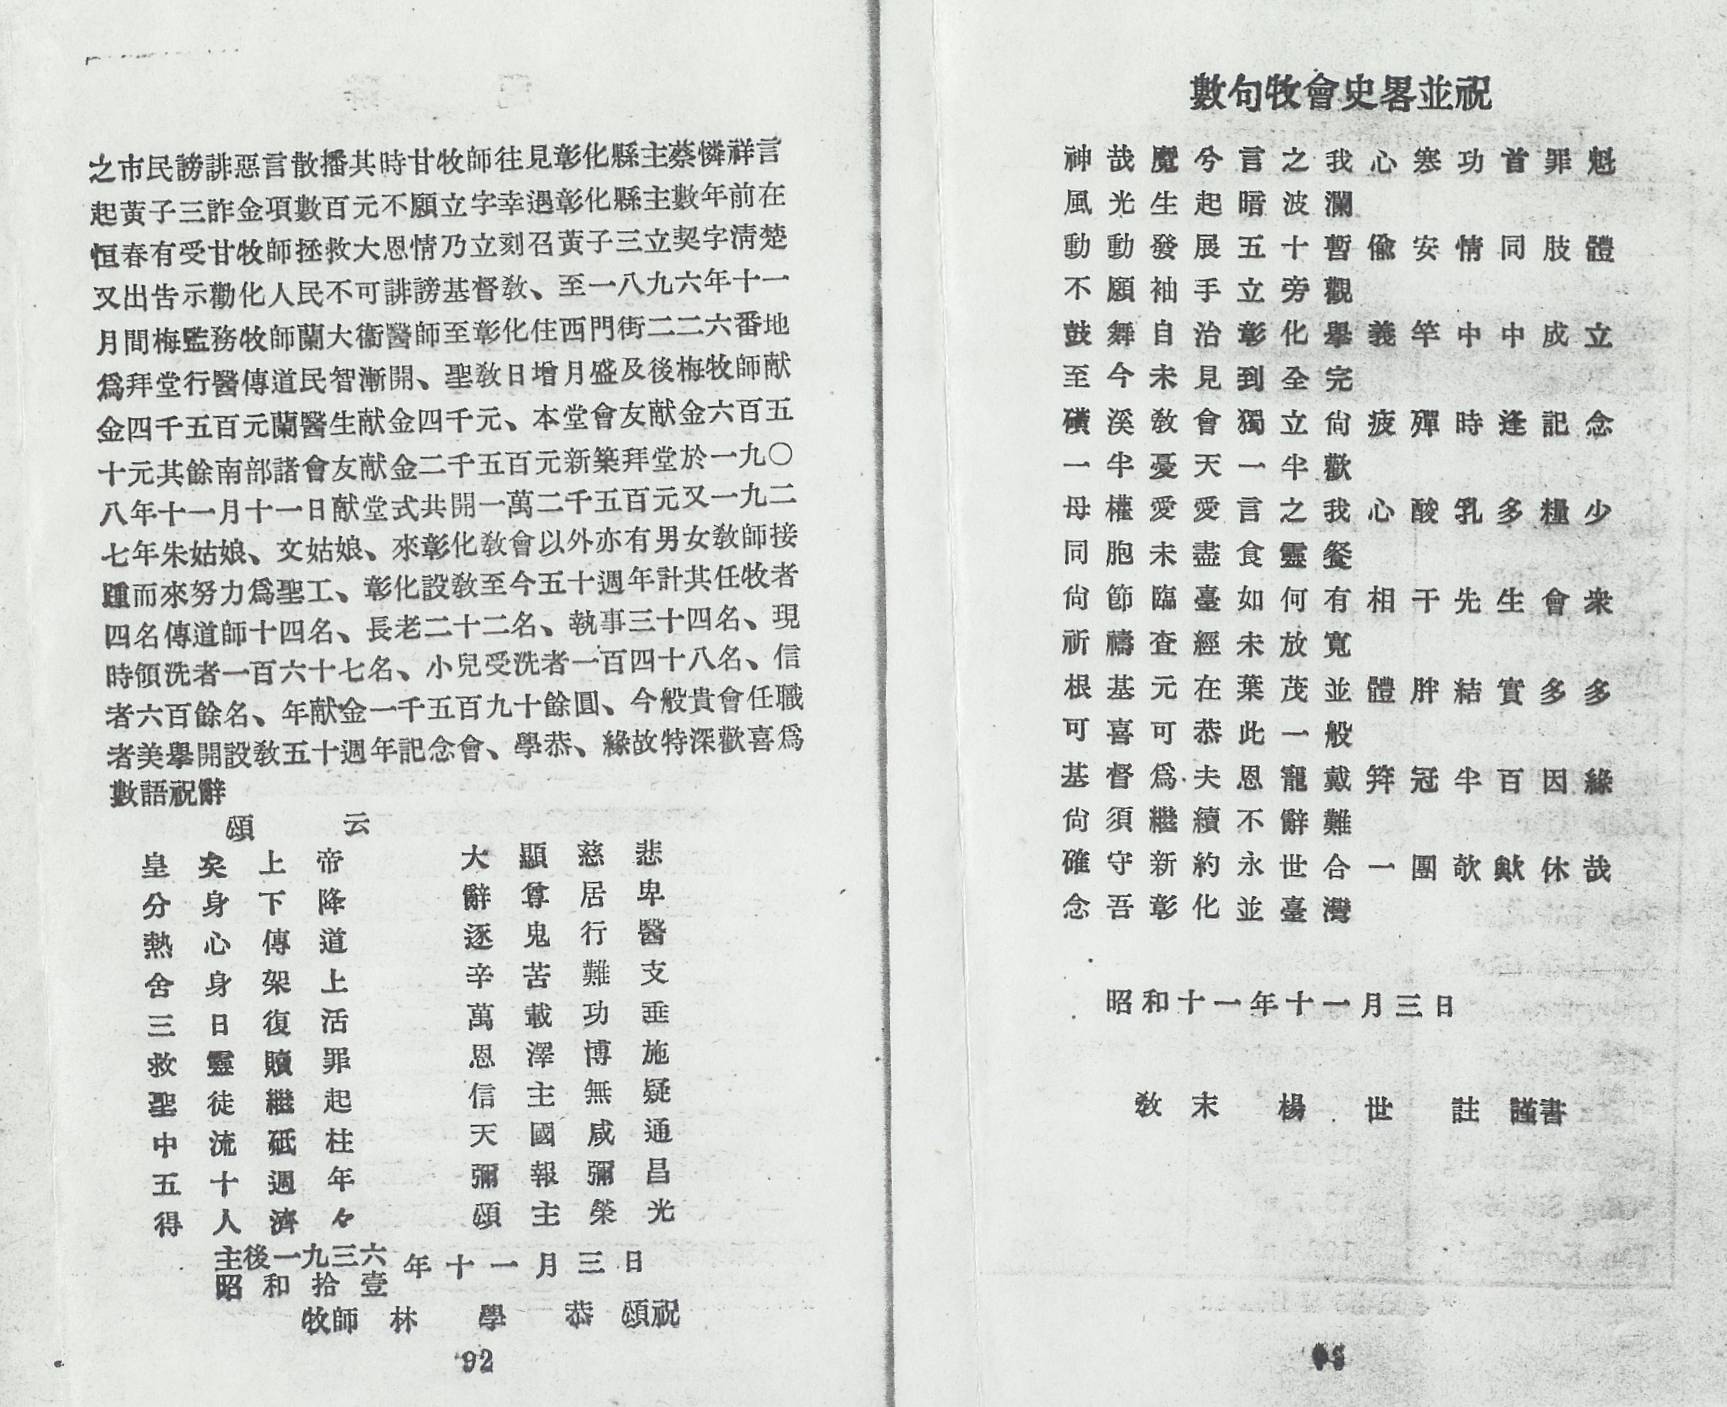 之市民謗誹惡言散播共時甘牧師往見彰化縣主蔡憐祥言
起黃子三詐金項數百元不願立字幸遇彰化縣主數年前在
恒春有受甘牧師拯救大恩情乃立刻召黃子三立契字淸楚
又出告示勸化人民不可誹謗基督敎、至一八九六年十一
月間梅監務牧師蘭大衞醫師至彰化住西門街二二六番地
爲拜堂行醫傳道民智漸開、聖敎日增月盛及後梅牧師献
金四千五百元蘭醫生献金四千元、本堂會友献金六百五
十元其餘南部諸會友献金二千五百元新築拜堂於一九〇
八年十一月十一日献堂式共開一萬二千五百元又一九二
七年朱姑娘、文姑娘、來彰化敎會以外亦有男女敎師接
踵而來努力爲聖工、彰化設敎至今五十週年計共任牧者
四名傳道師十四名、長老二十二名、執事三十四名、現
時領洗者一百六十七名、小兒受洗者一百四十八名、信
者六百餘名、年献金一千五百九十餘圓、今般貴會任職
者美擧開設敎五十週年記念會、學恭、緣故特深歡喜爲
數語祝辭
頌云
皇矣上帝　大顯慈悲
分身下降　辭尊居卑
熱心傳道　逐鬼行醫
舍身架上　辛苦難支
三日復活　萬載功垂
救靈贖罪　恩澤博施
聖徒繼起　信主無疑
中流砥柱　天國咸通
五十週年　彌報彌昌
得人濟々　頌主榮光
主後一九三六
昭和拾壹
年十一月三日
牧師　林　學　恭　頌祝
92
數句牧會史畧並祝
神哉魔兮言之我心寒功首罪魁
風光生起暗波瀾
動動發展五十暫偸安情同肢體
不願袖手立旁觀
鼓舞自治彰化擧義竿中中成立
至今未見到全完
磺溪敎會獨立尙疲殫時逢記念
一半憂天一半歡
母權愛愛言之我心酸乳多糧少
同胞未盡食靈餐
尙節臨臺如何有相干先生會衆
祈禱查經未放寬
根基元在葉茂並體胖結實多多
可喜可恭此一般
基督爲夫恩寵戴筓冠半百因緣
尙須繼續不辭難
確守新約永世合一團欹歟休哉
念吾彰化並臺灣
昭和十一年十一月三日
敎末　楊　世　註　謹書